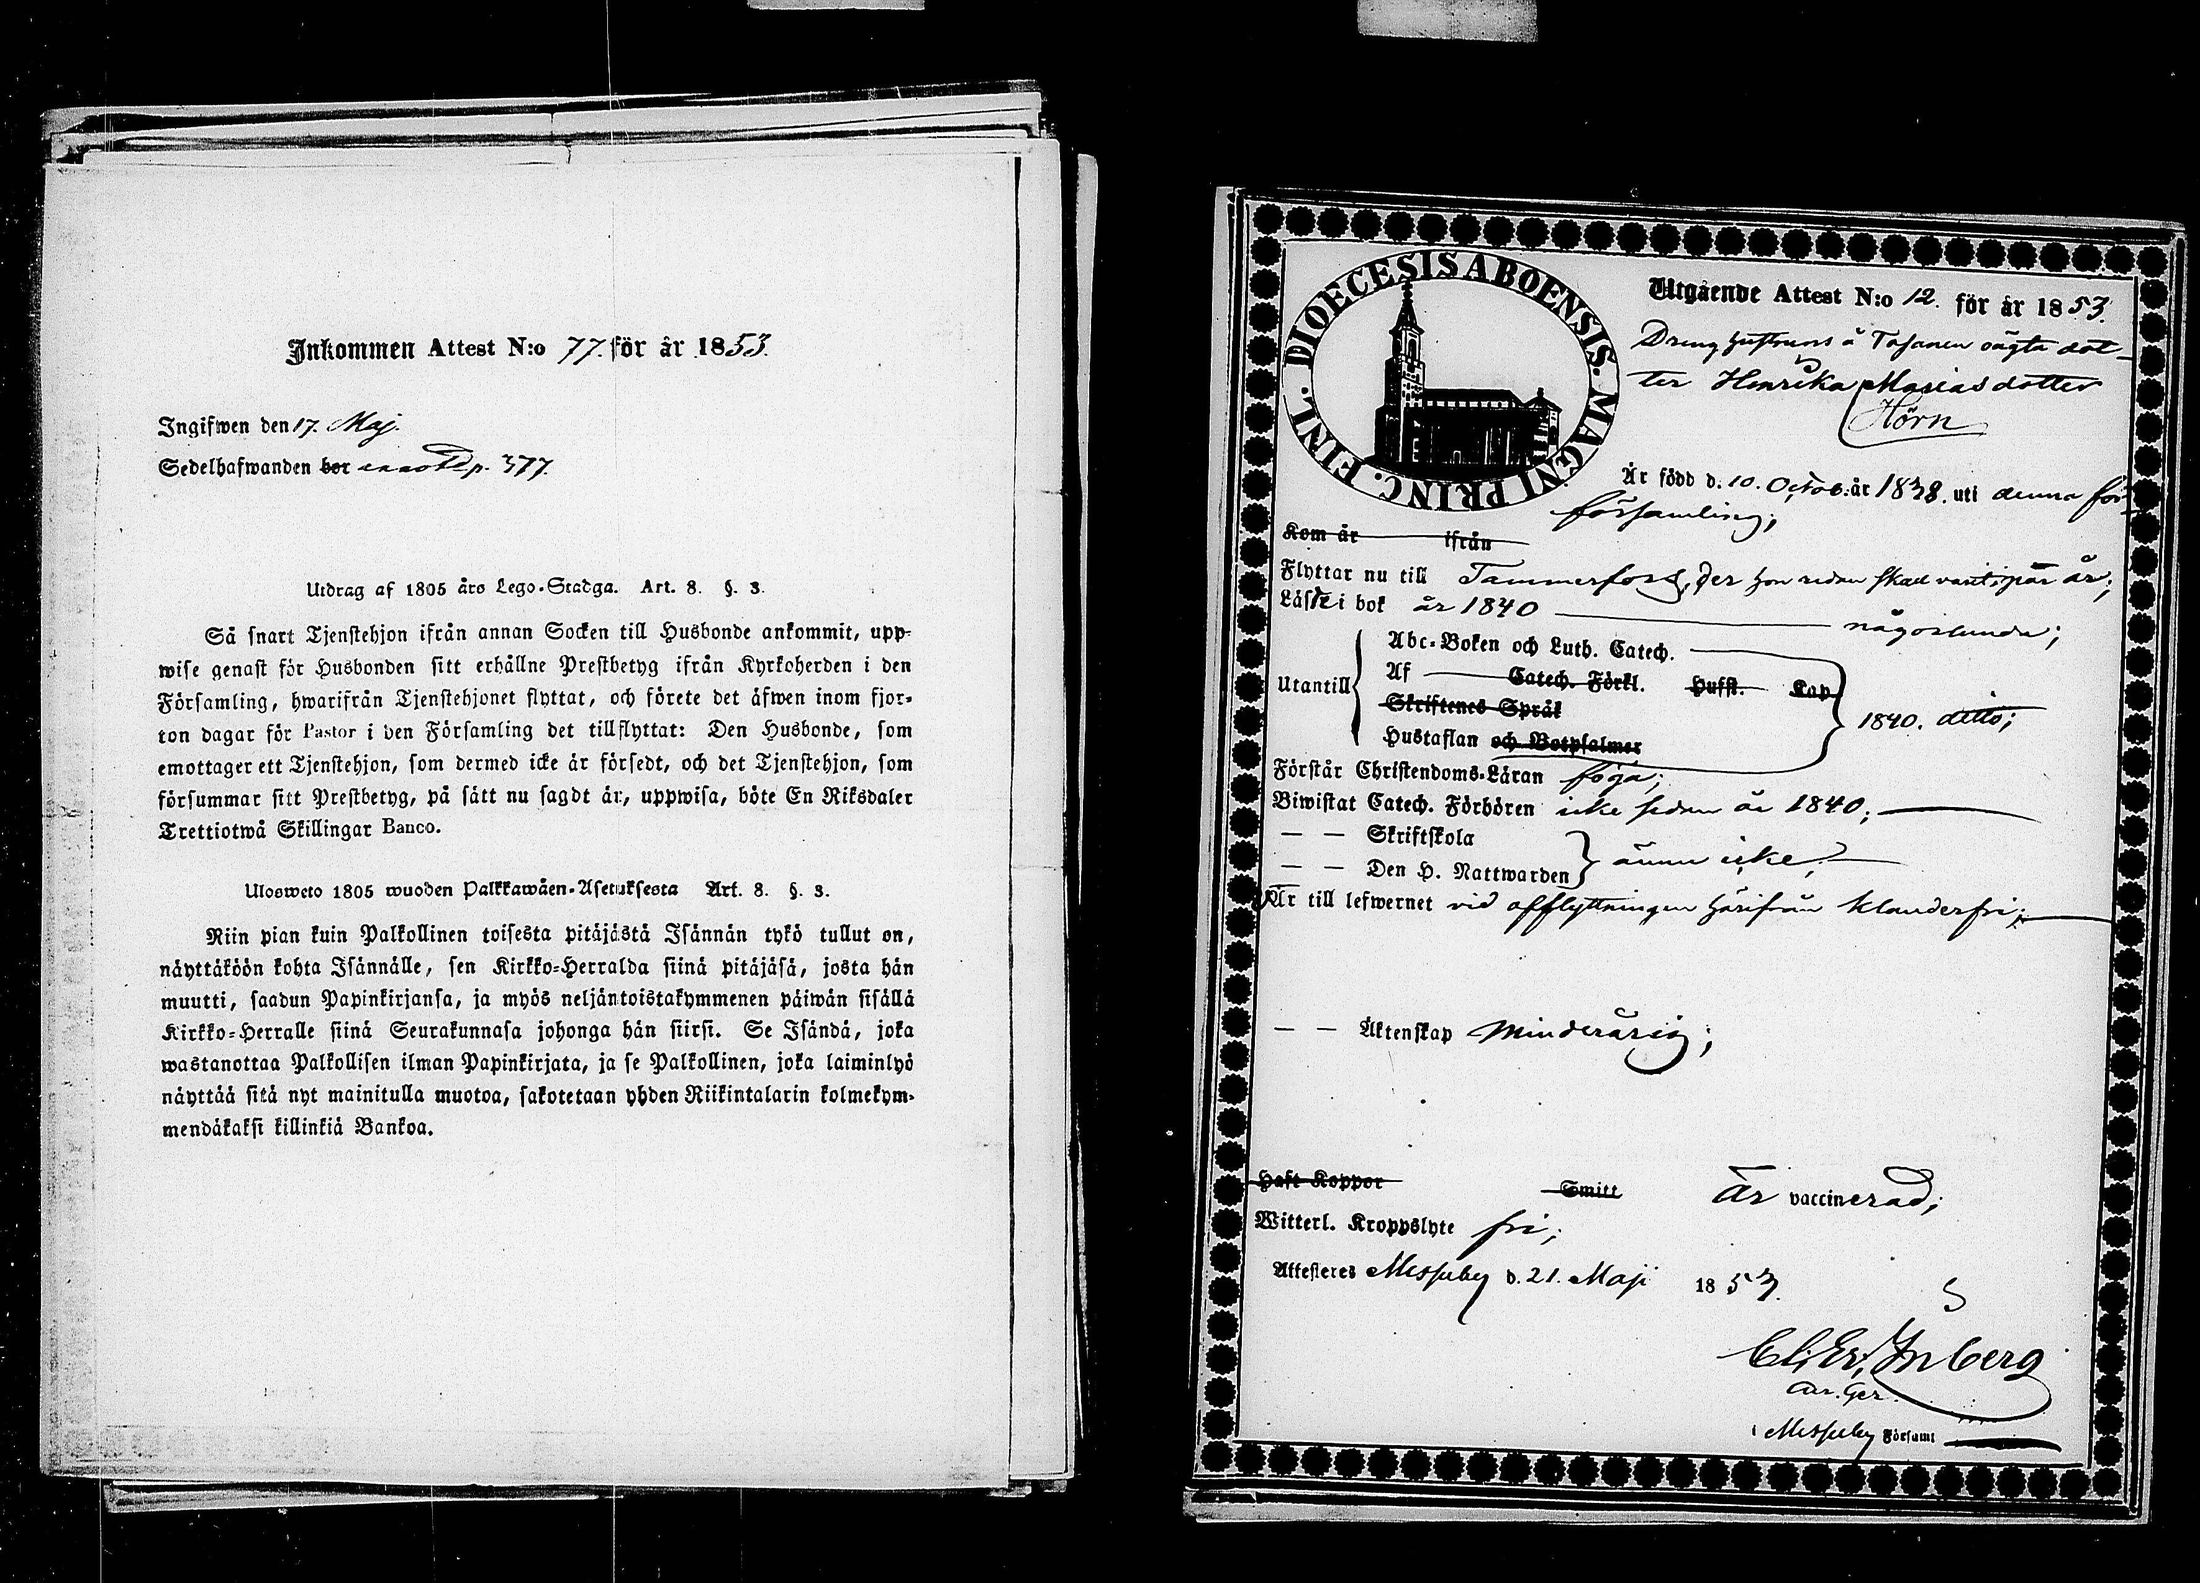 Inkommen Attest N:o 77. för år 1853.
Ingifwen den 17. Maj.
Sedelhafwanden bor p. 377.
Utdrag af 1805 års Lego-Stadga. Art. 8. §. 3.
Så snart Tjenstehjon ifrån annan Socken till Husbonde ankommit, upp-
wise genast för Husbonden sitt erhållne Prestbetyg ifrån Kyrkoherden i den
Församling, hwarifrån Tjenstehjonet flyttat, och förete det äfwen inom fjor-
ton dagar för Pastor i den Församling det tillflyttat: Den Husbonde, som
emottager ett Tjenstehjon, som dermed icke är försedt, och det Tjenstehjon, som
försummar sitt Prestbetyg, på sätt nu sagdt är, uppwisa, böte En Riksdaler
Trettiotwå Skillingar Banco.
Ulosweto 1805 wuoden Palkkawäen-Asetuksesta Art. 8. §. 3.
Niin pian kuin Palkollinen toisesta pitäjästä Isännän tykö tullut on,
näyttäköön kohta Isännälle, sen Kirkko-Herralda siinä pitäjäsä, josta hän
muutti, saadun Papinkirjansa, ja myös neljäntoistakymmenen päiwän sisällä
Kirkko-Herralle siinä Seurakunnasa johonga hän siirsi. Se Isändä, joka
wastanottaa Palkollisen ilman Papinkirjata, ja se Palkollinen, joka laiminlyö
näyttää sitä nyt mainitulla muotoa, sakotetaan yhden Riikintalarin kolmekym-
mendäkaksi killinkiä Bankoa.
DIOECESIS ABOENSIS. MAGNI PRINC. FINL.
Utgående Attest N:o 12. för år 1853.
Dreng hustruns å Tasanen oägta dot-
ter Henrika Mariasdotter
Hörn
Är född d. 10. Octob. år 1838. uti denna för-
församling;
Kom år ifrån
Flyttar nu till Tammerfors, der hon redan skall varit i par år;
Läste i bok år 1840 någorlunda;
Abc-Boken och Luth. Catech.
Af Catech. Förkl. Hufst. Kap.
Utantill
Skriftenes Språk
1840. ditto;
Hustaflan och Botpsalmer
Förstår Christendoms-Läran föga;
Biwistat Catech. Förhören icke sedan år 1840;
— — Skriftskola
ännu icke;
— — Den H. Nattwarden
Är till lefwernet vid afflyttningen härifrån klanderfri;
— — Äktenskap Minderårig;
Haft Koppor Smitt Är vaccinerad;
Witterl. Kroppslyte fri;
Attesteras Messuby d. 21. Maji 1853.
Cl. Er. Inberg
Messuby Församl